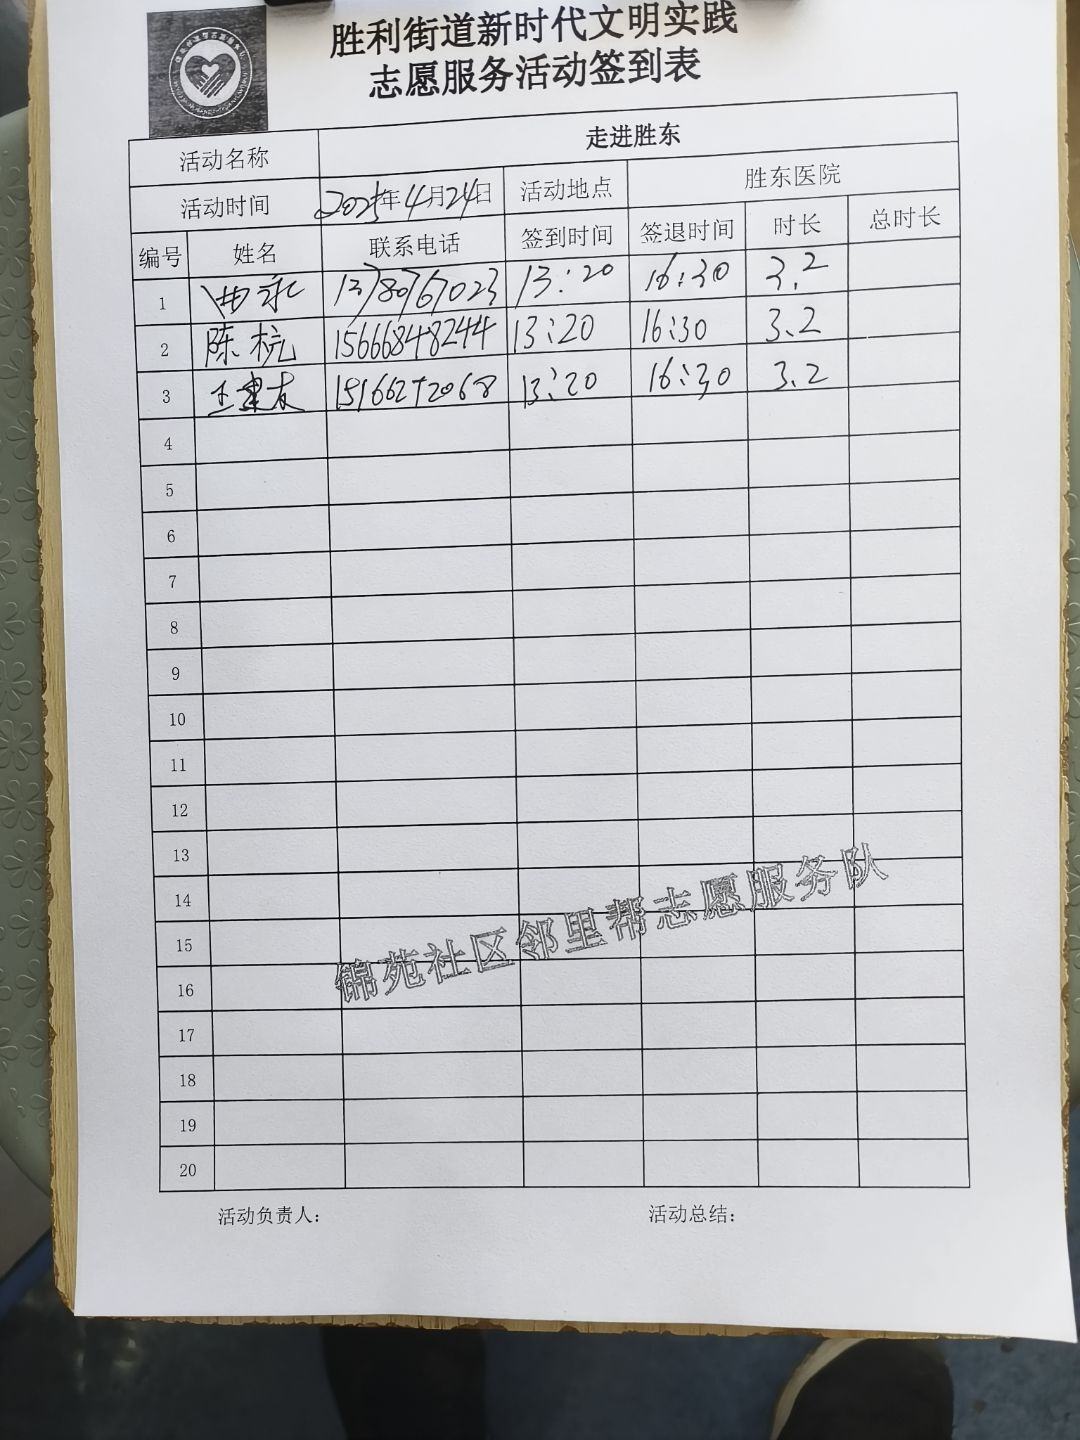 胜利街道新时代文明实践
志愿服务活动签到表
活动名称 走进胜东
活动时间 2025年4月24日 活动地点 胜东医院
编号 姓名 联系电话 签到时间 签退时间 时长 总时长
1 13780767023 13:20 16:30 3.2
2 陈杭 15666848244 13:20 16:30 3.2
3 王建友 15166272068 13:20 16:30 3.2
4
5
6
7
8
9
10
11
12
13
14
15
16
17
18
19
20
锦苑社区邻里帮志愿服务队
活动负责人: 活动总结: